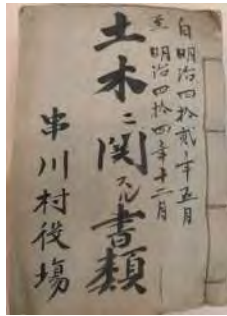 自明治四拾貮年五月
至明治四拾四年十二月
土木ニ関スル書類
串川村役場